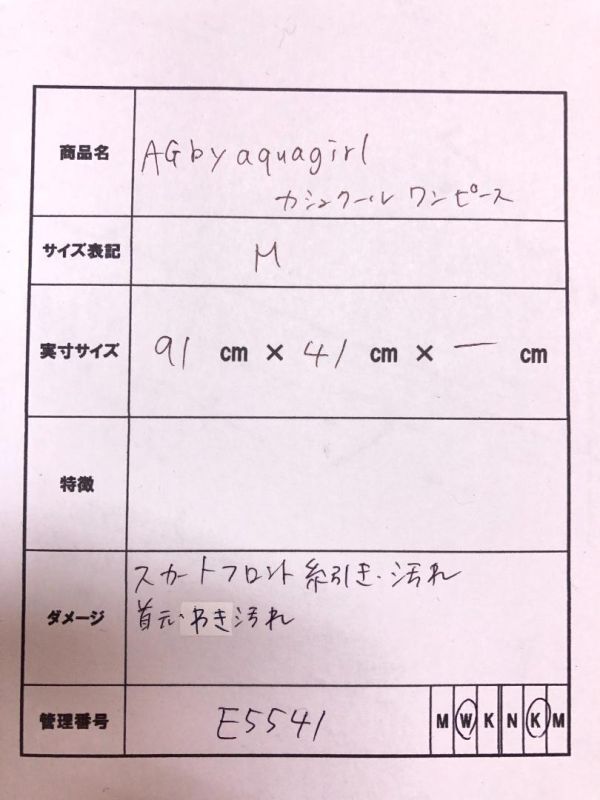 商品名
AG by aquagirl
カシュクール ワンピース
サイズ表記
M
実寸サイズ
91 cm × 41 cm × ー cm
特徴
ダメージ
スカートフロント 糸引き・汚れ
首元・わき汚れ
管理番号
E5541
M W K N K M